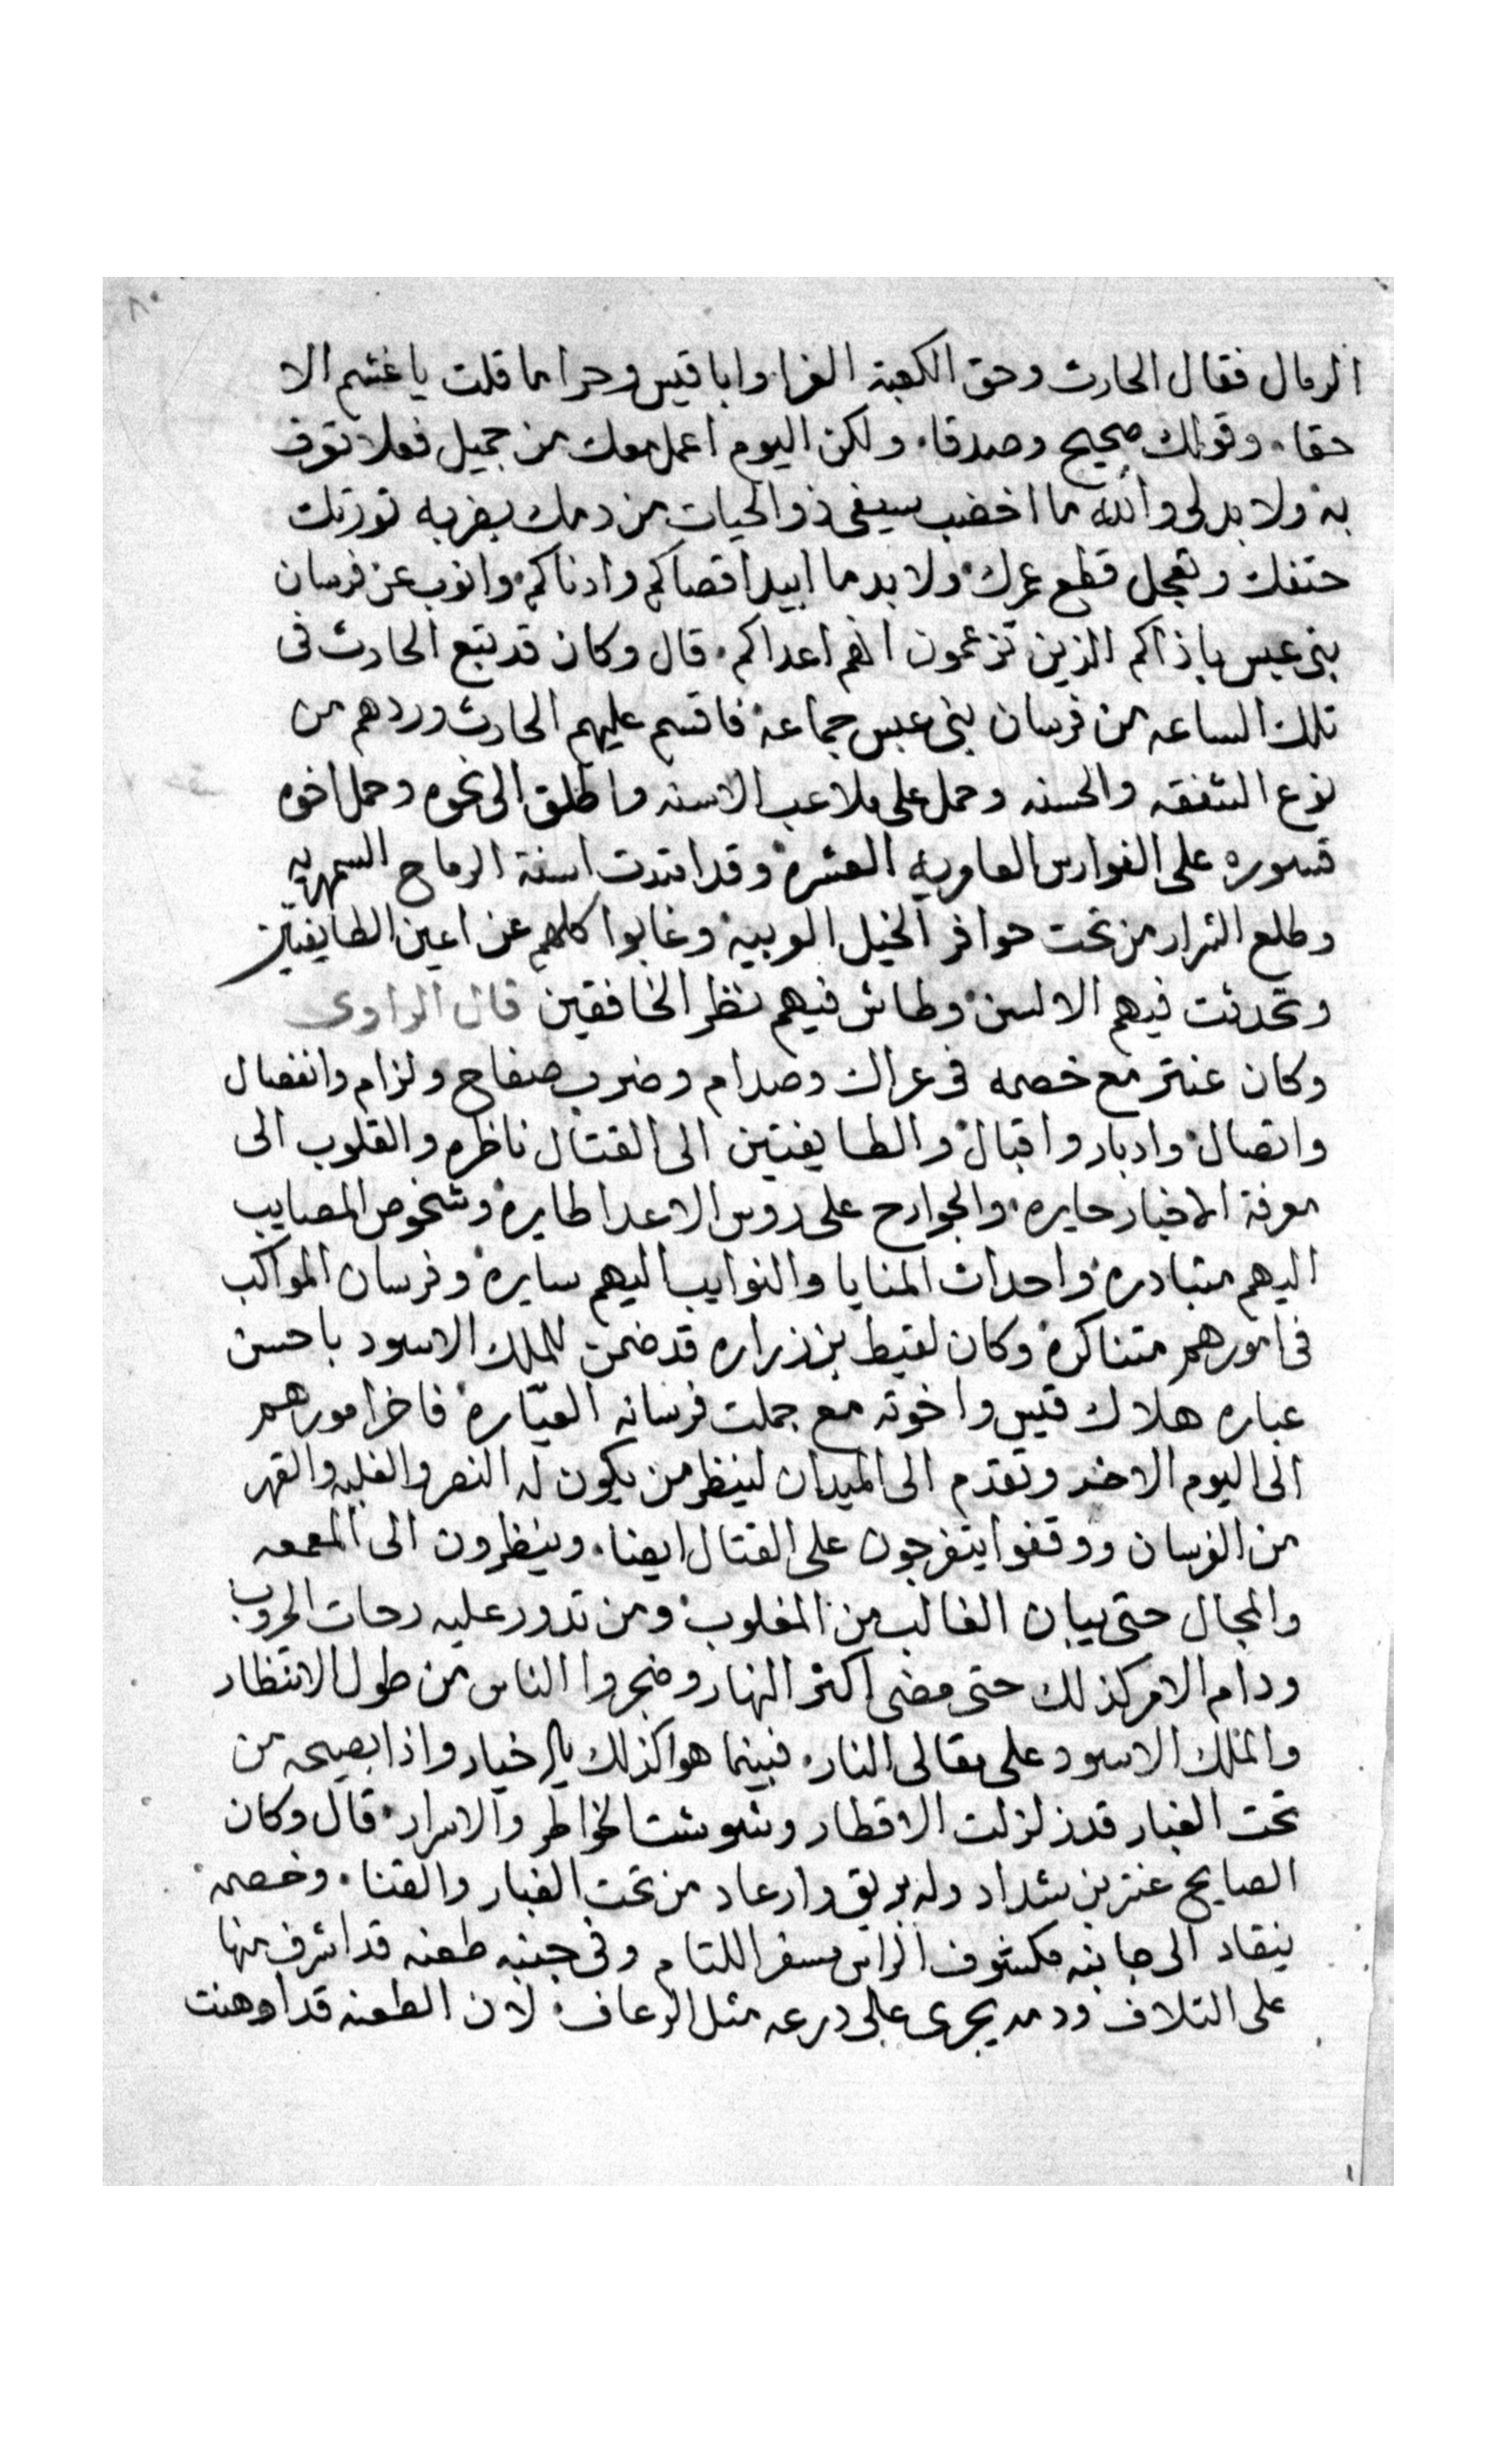 الرمال فقال الحارث وحق الكعبة الغرا وابا قيس وحرا ما قلت يا غشم الا
حقا. وقولك صحيح وصدقا. ولكن اليوم اعمل معك من جميل فعلا توف
به ولا بد لى والله ما اخضب سيفى ذو الحيات من دمك بضربه تورتك
حتفك وتعجل قطع عمرك ولا بد ما ابيد اقصاكم وادناكم وانوب عن فرسان
بنى عبس باذاكم الذين تزعمون انهم اعداكم. قال وكان قد تبع الحارث فى
تلك الساعه من فرسان بنى عبس جماعة فاقسم عليهم الحارث وردهم من
نوع الشفقه والحسنه وحمل على ملاعب الاسنه واطلق الى نحوه وحمل اخوه
قسوره على الفوارس العامريه العشرة وقد امتدت اسنة الرماح السمهريه
وطلع الشرار من تحت حوافر الخيل العربية وغابوا كلهم عن اعين الطايفتين
وتحدثت فيهم الالسن وطاش فيهم نظر الخافقين قال الراوى
وكان عنتر مع خصمه فى عراك وصدام وضرب صفاح ولزام وانفصال
واتصال وادبار واقبال والطايفتين الى القتال ناظره والقلوب الى
معرفة الاخبار حايره. والجوارح على روس الاعدا طايرة وشخوص المصايب
اليهم متبادرة واحداث المنايا والنوايب اليهم سايرة وفرسان المواكب
فى امورهم متناكرة وكان لقيط بن زراره قد ضمن للملك الاسود باحسن
عباره هلاك قيس واخوته مع جملت فرسانه العيّارة فاخر امورهم
الى اليوم الاخر وتقدم الى الميدان لينظر من يكون له النصر والغلبه والقهر
من الفرسان ووقفوا يتفرجون على القتال ايضا. وينظرون الى المعمعه
والمجال حتى يبان الغالب من المغلوب ومن تدور عليه رحات الحروب
ودام الامر كذلك حتى مضى اكثر النهار وضجروا الناس من طول الانتظار
والملك الاسود على مقالى النار. فبينما هوا كذلك بالاخيار واذا بصيحه من
تحت الغبار قد زلزلت الاقطار وشوشت الخواطر والاسرار. قال وكان
الصايح عنتر بن شداد وله بريق وارعاد من تحت الغبار والقنا. وخصمه
ينقاد الى جانبه مكشوف الراس مسفر اللتام وفى جنبه طعنه قد اشرف منها
على التلاف ودمه يجرى على درعه مثل الرعاف لان الطعنه قد اوهنت